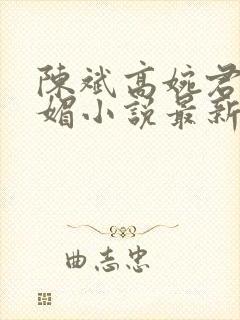 陳斌高婉君
媚小說最新
曲志忠